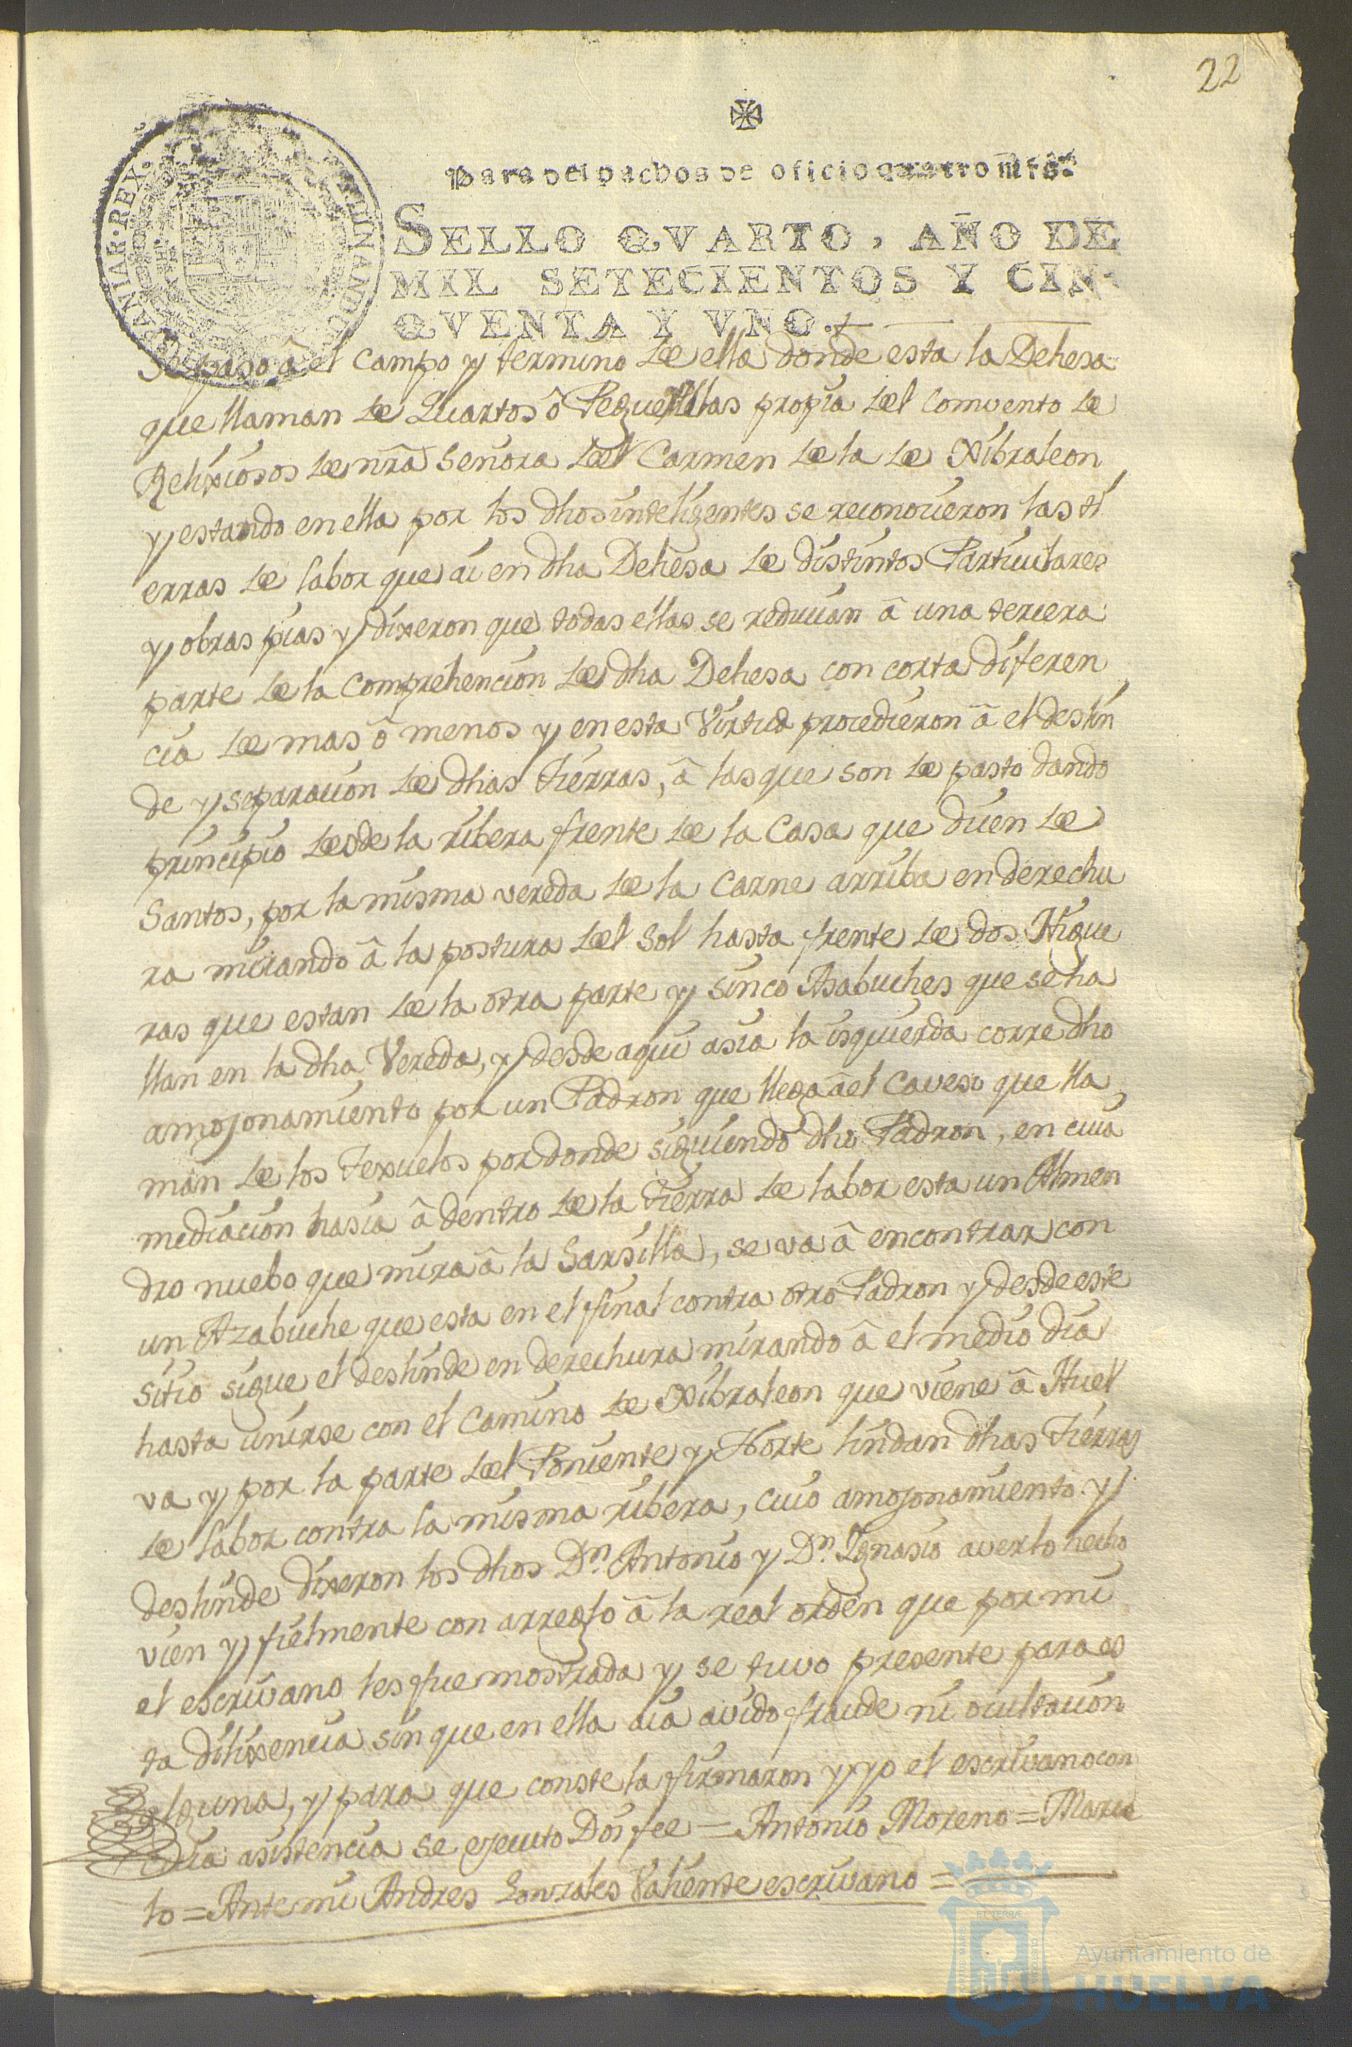 22
Para despachos de oficio quatro mrs.
SELLO QVARTO, AÑO DE
MIL SETECIENTOS Y CIN-
QVENTA Y VNO.
Se paso â el Campo y termino de ella donde esta la Dehesa
que llaman de Quartos ô Peguerillas propia del Comvento de
Relixiosos de nrã Señora del Carmen de la de Xibraleon
y estando en ella por los dhos inteligentes se reconocieron las ti
erras de labor que ai en dha Dehesa de distintos Particulares
y obras pias y dixeron que todas ellas se reducian â una tercera
parte de la Comprehencion de dha Dehesa con corta diferen
cia de mas ô menos y en esta Virtud procedieron â el deslin
de y separacion de dhas tierras, â las que son de pasto dando
principio desde la ribera frente de la Casa que dicen de
Santos, por la misma vereda de la Carne arriba en derechu
ra mirando â la postura del Sol hasta frente de dos Higue
ras que estan de la otra parte y sinco Asabuches que se ha
llan en la dha Vereda, y desde aqui asia la isquierda corre dho
amojonamiento por un Padron que llega â el Caveso que lla
man de los texuelos por donde siguiendo dho Padron, en cuia
mediacion hasia â dentro de la tierra de labor esta un Almen
dro nuebo que mira â la Sarsilla, se va â encontrar con
un Azabuche que esta en el final contra otro Padron y desde este
sitio sigue el deslinde en derechura mirando â el medio dia
hasta unirse con el Camino de Xibraleon que viene â Huel
va y por la parte del Poniente y Norte lindan dhas tierras
de labor contra la misma ribera, cuio amojonamiento y
deslinde dixeron los dhos Dn. Antonio y Dn. Ignasio averlo hecho
vien y fielmente con arreglo â la real orden que por mi
el escrivano les fue mostrada y se tuvo presente para es
ta dilixencia sin que en ella aia avido fraude ni ocultacion
alguna, y para que conste la firmaron y yo el escrivano con
cuia asistencia se ejecuto Doi fee = Antonio Moreno = Marce
lo = Ante mi Andres Gonzales Valiente escrivano =
Ayuntamiento de
HUELVA